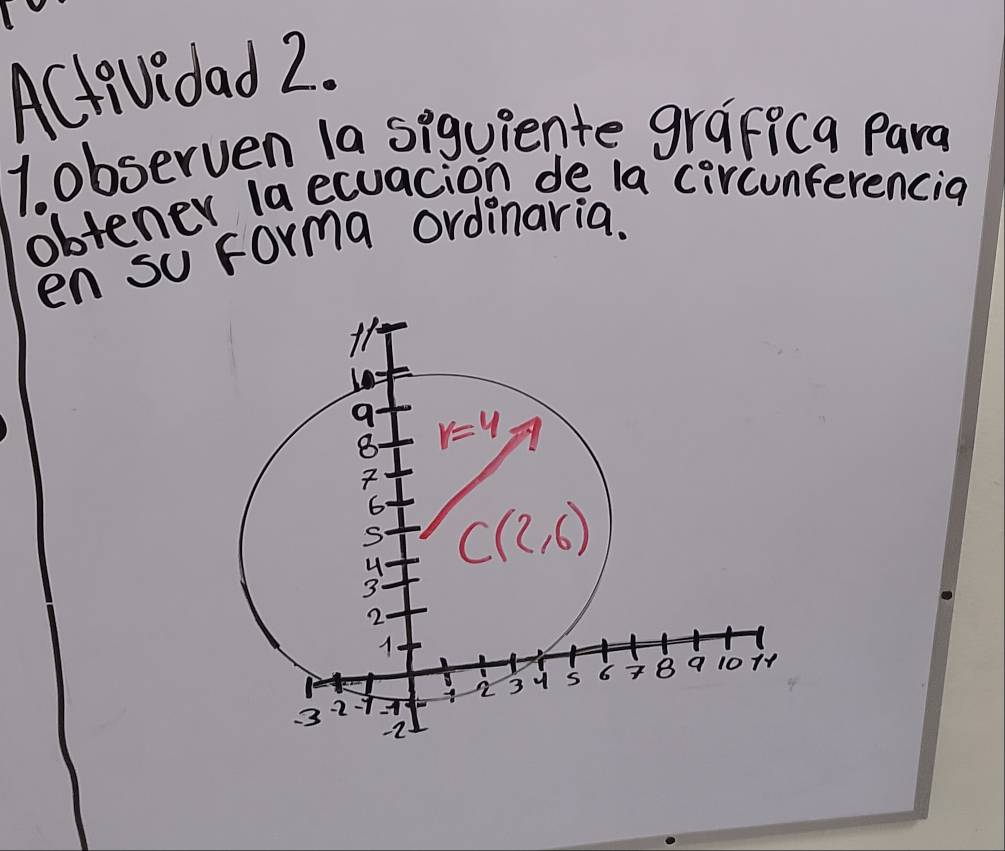 Actividad 2.
1. observen la siguiente gráfica Para
obtener la ecuación de la circunferencia
en su forma ordinaria.
11
10
9
8
7
6
5
4
3
2
1
r=4
C(2,6)
-3 -2 -1 1 2 3 4 5 6 7 8 9 10 11
-1
-2